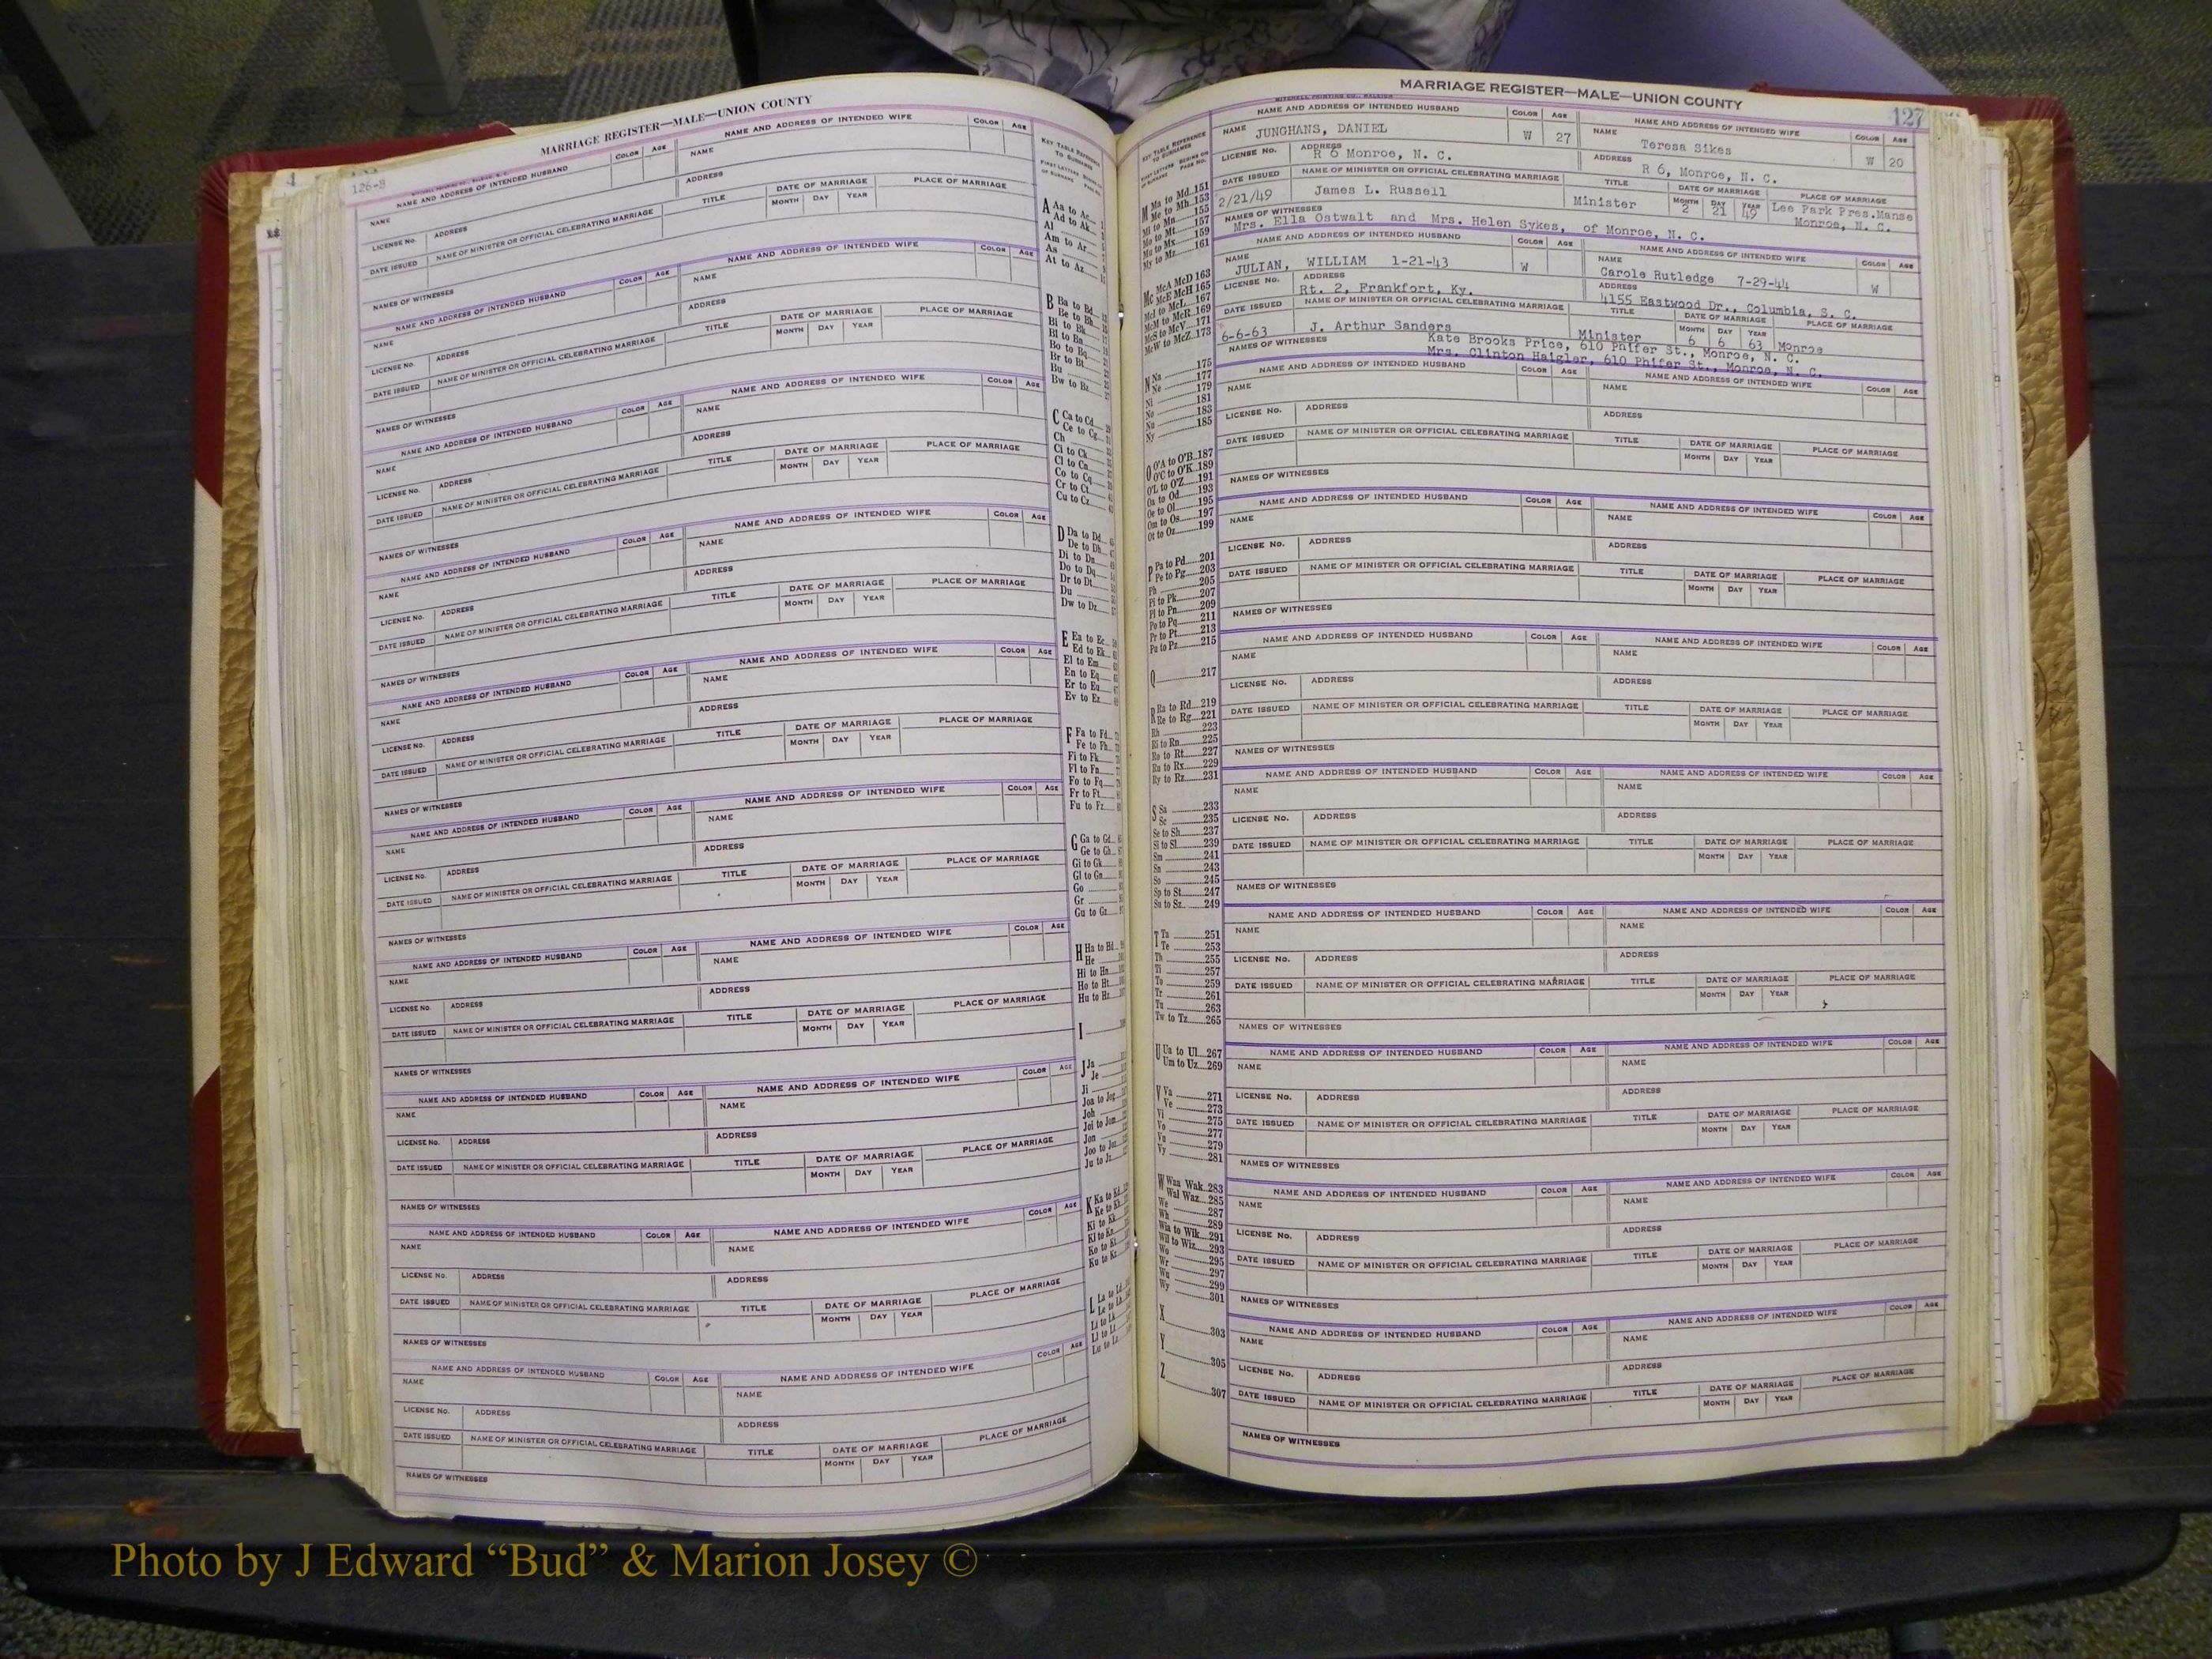 MARRIAGE REGISTER—MALE—UNION COUNTY
126-B
NAME AND ADDRESS OF INTENDED HUSBAND COLOR AGE NAME AND ADDRESS OF INTENDED WIFE COLOR AGE
NAME NAME
LICENSE No. ADDRESS ADDRESS
DATE ISSUED NAME OF MINISTER OR OFFICIAL CELEBRATING MARRIAGE TITLE DATE OF MARRIAGE PLACE OF MARRIAGE
MONTH DAY YEAR
NAMES OF WITNESSES
KEY TABLE REFERENCE TO SURNAMES
A Aa to Ac
Ad to Ak
Al
Am to Ar
As
At to Az
B Ba to Bd
Be to Bh
Bi to Bk
Bl to Bn
Bo to Bq
Br to Bt
Bu
Bw to Bz
C Ca to Cd
Ce to Cg
Ch
Ci to Ck
Cl to Cn
Co to Cq
Cr to Ct
Cu to Cz
D Da to Dd
De to Dh
Di to Dn
Do to Dq
Dr to Dt
Du
Dw to Dz
E Ea to Ec
Ed to Ek
El to Em
En to Eq
Er to Eu
Ev to Ez
F Fa to Fd
Fe to Fh
Fi to Fk
Fl to Fn
Fo to Fq
Fr to Ft
Fu to Fz
G Ga to Gd
Ge to Gh
Gi to Gk
Gl to Gn
Go
Gr
Gu to Gz
H Ha to Hd
He
Hi to Hn
Ho to Ht
Hu to Hz
I
J Ja
Je
Ji
Joa to Jog
Joh
Joi to Jom
Jon
Joo to Joz
Ju to Jz
K Ka to Kd
Ke to Kh
Ki to Kk
Kl to Kn
Ko to Kt
Ku to Kz
L La to Ld
Le to Lh
Li to Lk
Ll to Lt
Lu to Lz
MARRIAGE REGISTER—MALE—UNION COUNTY
127
MITCHELL PRINTING CO., RALEIGH
NAME AND ADDRESS OF INTENDED HUSBAND COLOR AGE NAME AND ADDRESS OF INTENDED WIFE COLOR AGE
NAME JUNGHANS, DANIEL W 27 NAME Teresa Sikes W 20
LICENSE No. ADDRESS R 6 Monroe, N. C. ADDRESS R 6, Monroe, N. C.
DATE ISSUED NAME OF MINISTER OR OFFICIAL CELEBRATING MARRIAGE TITLE DATE OF MARRIAGE PLACE OF MARRIAGE
2/21/49 James L. Russell Minister MONTH 2 DAY 21 YEAR 49 Lee Park Pres.Manse
Monroe, N. C.
NAMES OF WITNESSES Mrs. Ella Ostwalt and Mrs. Helen Sykes, of Monroe, N. C.
NAME AND ADDRESS OF INTENDED HUSBAND COLOR AGE NAME AND ADDRESS OF INTENDED WIFE COLOR AGE
NAME JULIAN, WILLIAM 1-21-43 W NAME Carole Rutledge 7-29-44 W
LICENSE No. ADDRESS Rt. 2, Frankfort, Ky. ADDRESS 4155 Eastwood Dr., Columbia, S. C.
DATE ISSUED NAME OF MINISTER OR OFFICIAL CELEBRATING MARRIAGE TITLE DATE OF MARRIAGE PLACE OF MARRIAGE
6-6-63 J. Arthur Sanders Minister MONTH 6 DAY 6 YEAR 63 Monroe
NAMES OF WITNESSES Kate Brooks Price, 610 Phifer St., Monroe, N. C.
Mrs. Clinton Haigler, 610 Phifer St., Monroe, N. C.
NAME AND ADDRESS OF INTENDED HUSBAND COLOR AGE NAME AND ADDRESS OF INTENDED WIFE COLOR AGE
NAME NAME
LICENSE No. ADDRESS ADDRESS
DATE ISSUED NAME OF MINISTER OR OFFICIAL CELEBRATING MARRIAGE TITLE DATE OF MARRIAGE PLACE OF MARRIAGE
MONTH DAY YEAR
NAMES OF WITNESSES
M Ma to Md 151
Me to Mh 153
Mi to Mn 155
Mo to Mt 157
Mu to Mx 159
My to Mz 161
Mc McA McD 163
McE McH 165
McI to McL 167
McM to McR 169
McS to McV 171
McW to McZ 173
N Na 175
Ne 177
Ni 179
No 181
Nu 183
Ny 185
O O'A to O'B 187
O'C to O'K 189
O'L to O'Z 191
Oa to Od 193
Oe to Ol 195
Om to Os 197
Ot to Oz 199
P Pa to Pd 201
Pe to Pg 203
Ph 205
Pi to Pk 207
Pl to Pn 209
Po to Pq 211
Pr to Pt 213
Pu to Pz 215
Q 217
R Ra to Rd 219
Re to Rg 221
Rh 223
Ri to Rn 225
Ro to Rt 227
Ru to Rx 229
Ry to Rz 231
S Sa 233
Sc 235
Se to Sh 237
Si to Sl 239
Sm 241
Sn 243
So 245
Sp to St 247
Su to Sz 249
T Ta 251
Te 253
Th 255
Ti 257
To 259
Tr 261
Tu 263
Tw to Tz 265
U Ua to Ul 267
Um to Uz 269
V Va 271
Ve 273
Vi 275
Vo 277
Vu 279
Vy 281
W Waa Wak 283
Wal Waz 285
We 287
Wh 289
Wia to Wik 291
Wil to Wiz 293
Wo 295
Wr 297
Wu 299
Wy 301
X 303
Y 305
Z 307
Photo by J Edward “Bud” & Marion Josey ©